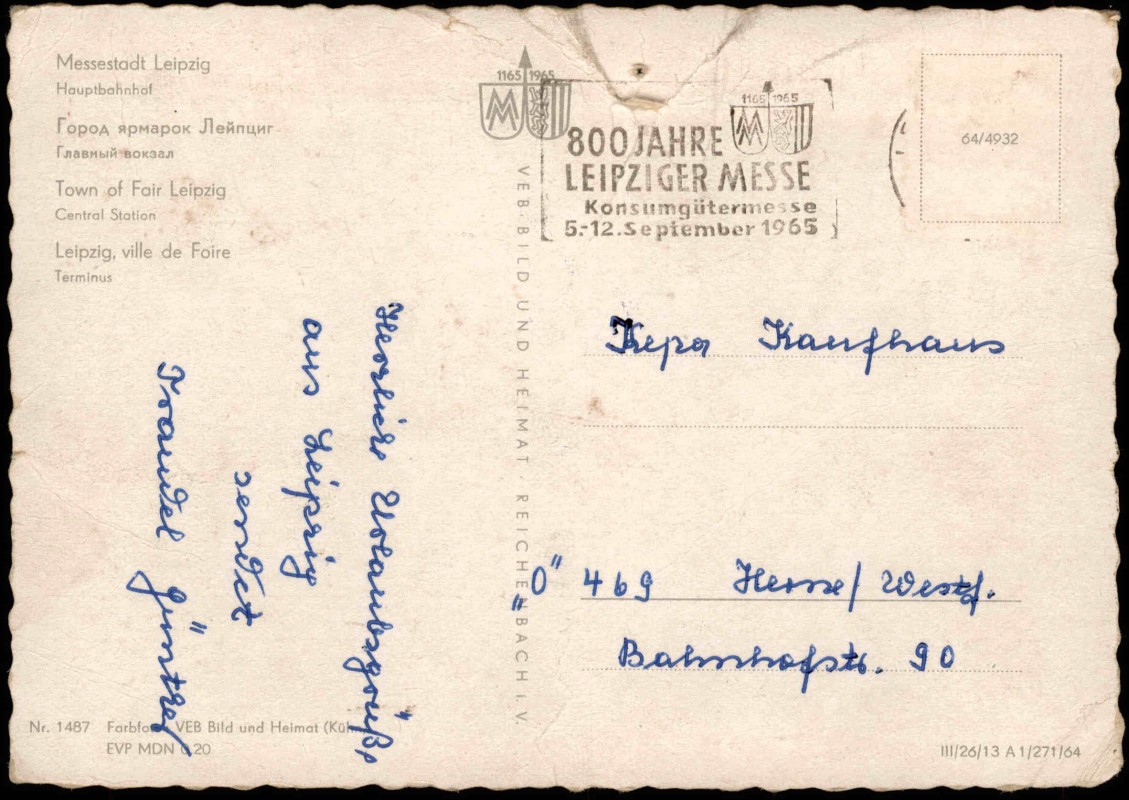 Messestadt Leipzig
Hauptbahnhof
Город ярмарок Лейпциг
Главный вокзал
Town of Fair Leipzig
Central Station
Leipzig, ville de Foire
Terminus
1165 1965
MM
1165 1965
MM
800 JAHRE
LEIPZIGER MESSE
Konsumgütermesse
5.-12. September 1965
64/4932
VEB BILD UND HEIMAT · REICHENBACH I. V.
Herzliche Urlaubsgrüße
aus Leipzig
sendet
Traudel Günther
Kepa Kaufhaus
"O" 469 Herne/Westf.
Bahnhofstr. 90
Nr. 1487 Farbfoto: VEB Bild und Heimat
EVP MDN 0,20
III/26/13 A 1/271/64